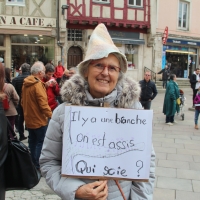 N A CAFE
Il y a une branche
on est assis
Qui scie ?